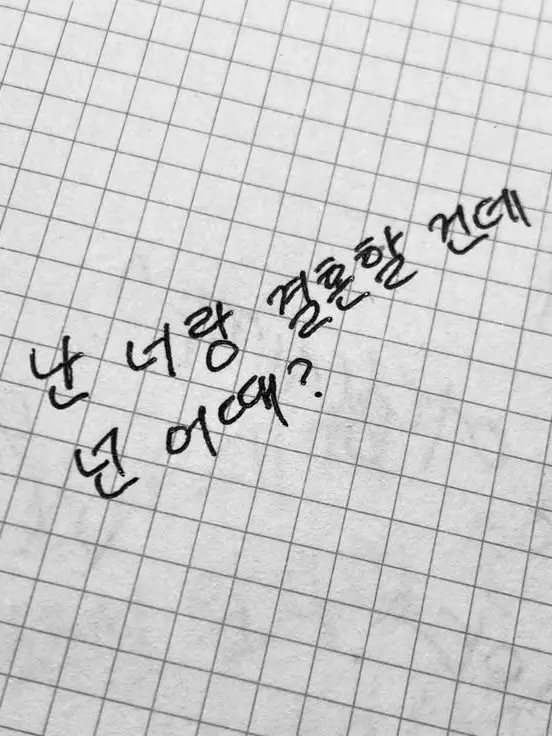 난 너랑 결혼할 건데
넌 어때?